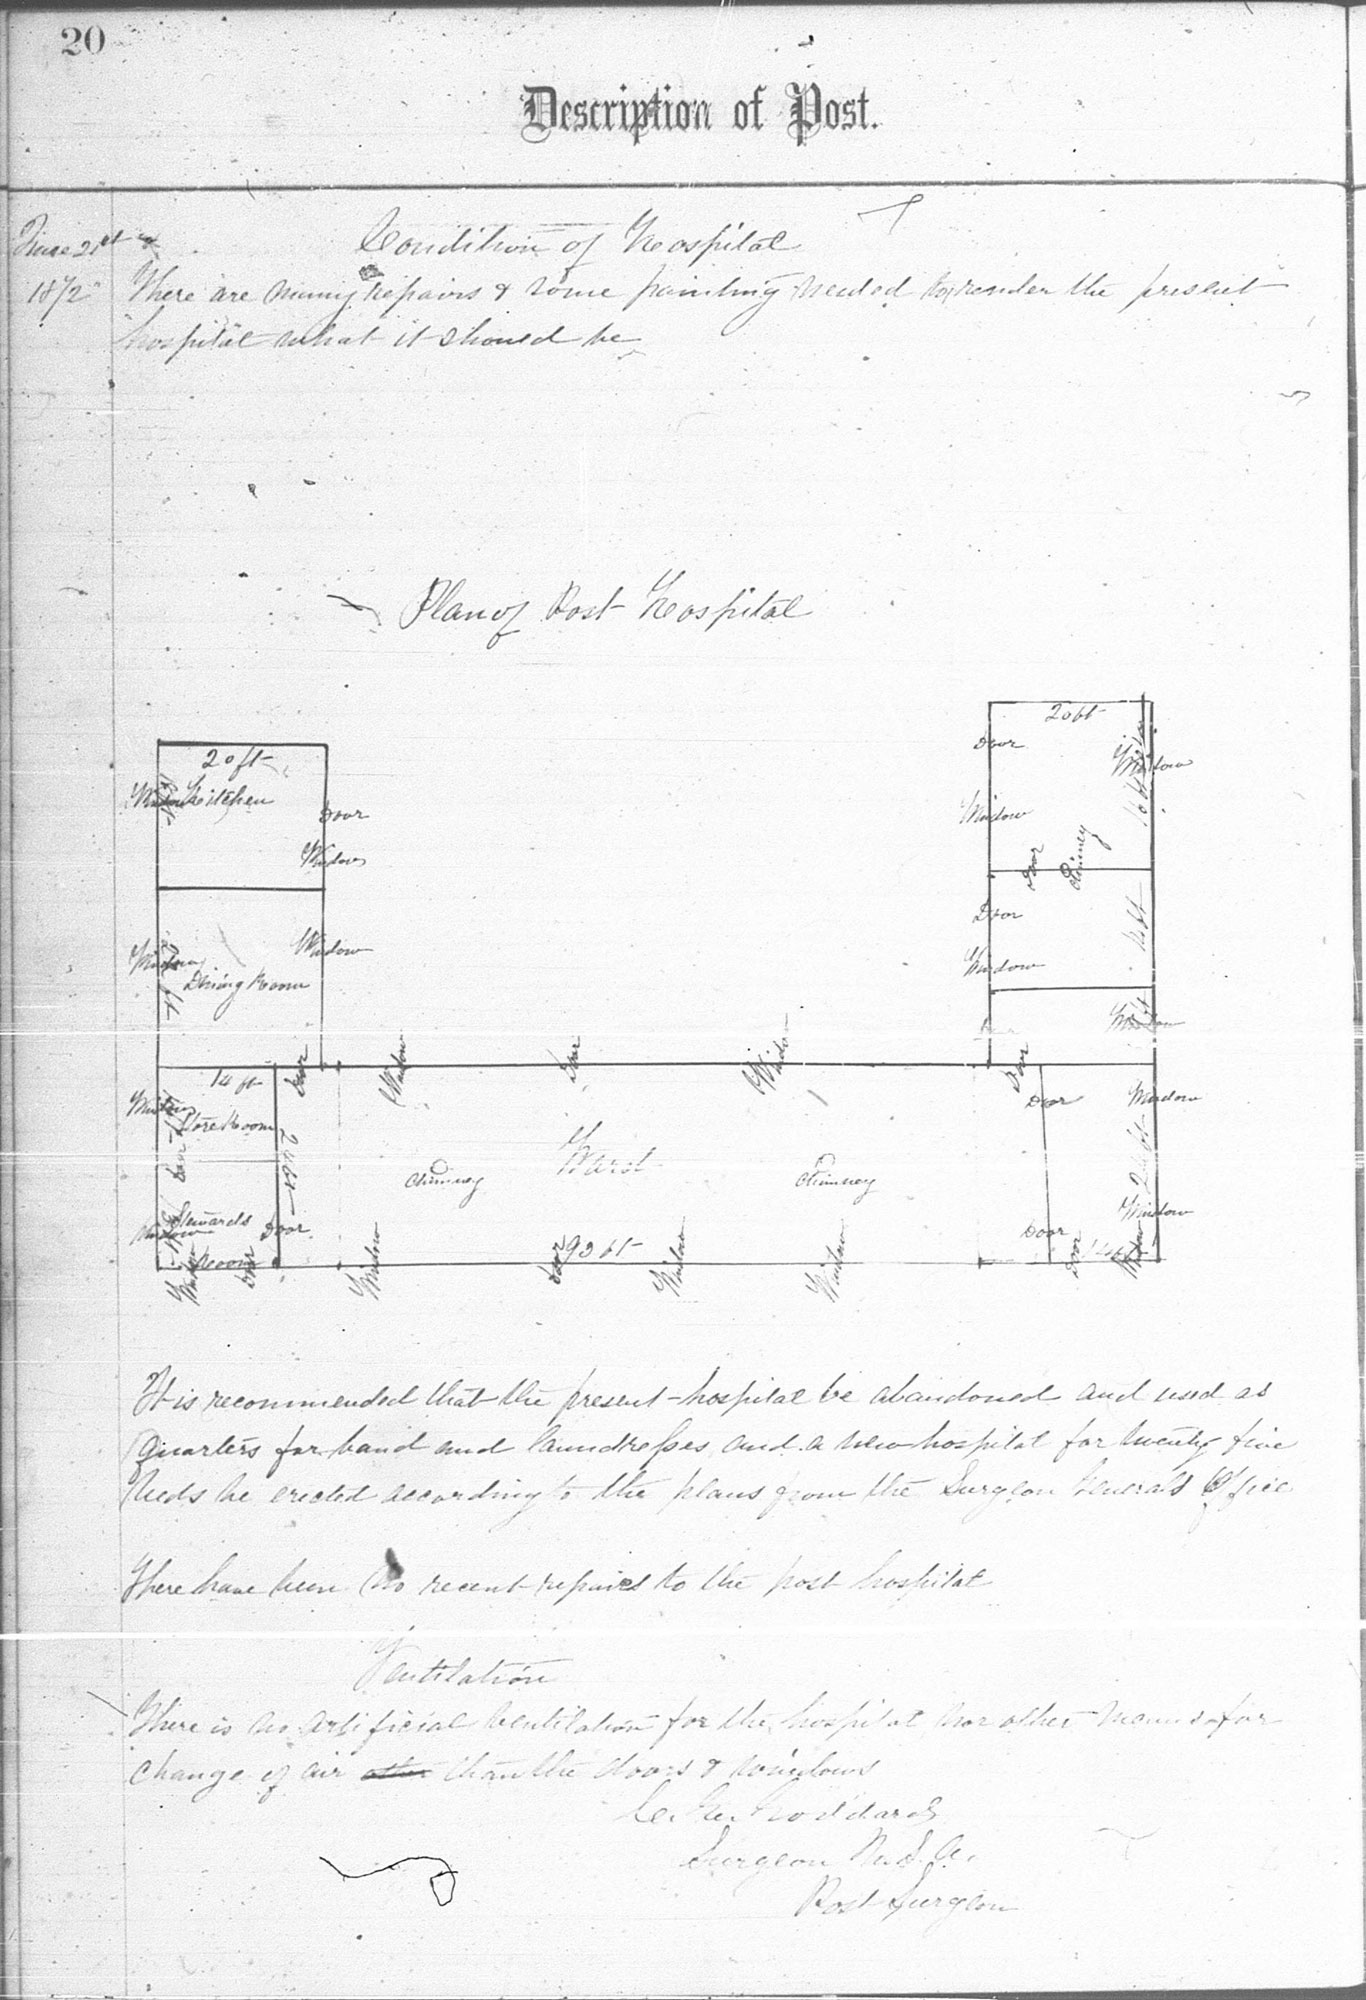 20
Description of Post.
June 21st
1872
Condition of Hospital
There are many repairs & some painting needed to render the present
hospital what it should be
Plan of Post Hospital
20 ft
20 ft
Door
Window
Window Kitchen
Door
Window
Window
Door
Chimney
Door
Window
Window
Dining Room
Window
14 ft
Window
Door
Window
Door
Window
Door
14 ft
Door
Window
Window
Store Room
24 ft
Ward
Chimney
Chimney
24 ft
Window
Stewards
Room
Door
Door
Window
Window
Door
Window
Door
93 ft
Window
Window
Door
14 ft
Window
It is recommended that the present hospital be abandoned and used as
quarters for band and laundresses and a new hospital for twenty five
beds be erected according to the plans from the Surgeon Generals Office
There have been no recent repairs to the post hospital
Ventilation
There is no artificial ventilation for the hospital nor other means for
change of air other than the doors & windows
Goddard
Surgeon U.S.A.
Post Surgeon